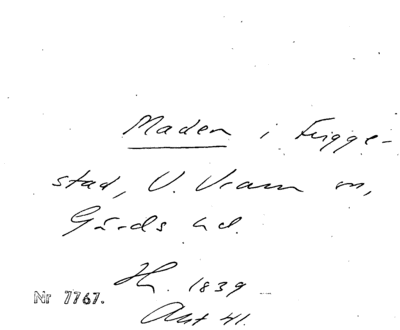 Maden i Frigge-
stad, V. Vram sn,
Gärds hd.
1839
Nr 7767.
Akt 41.